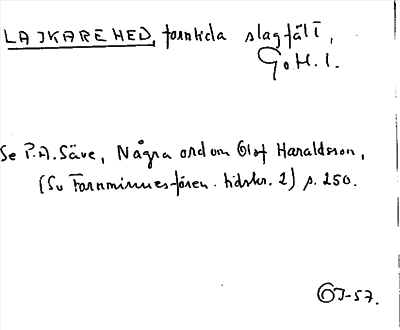 LAJKAREHED, forntida slagfält,
G.H.I.
Se P.A. Säve, Några ord om Olof Haraldsson,
(Sv Fornminnesfören. tidskr. 2) s. 250.
OJ-57.